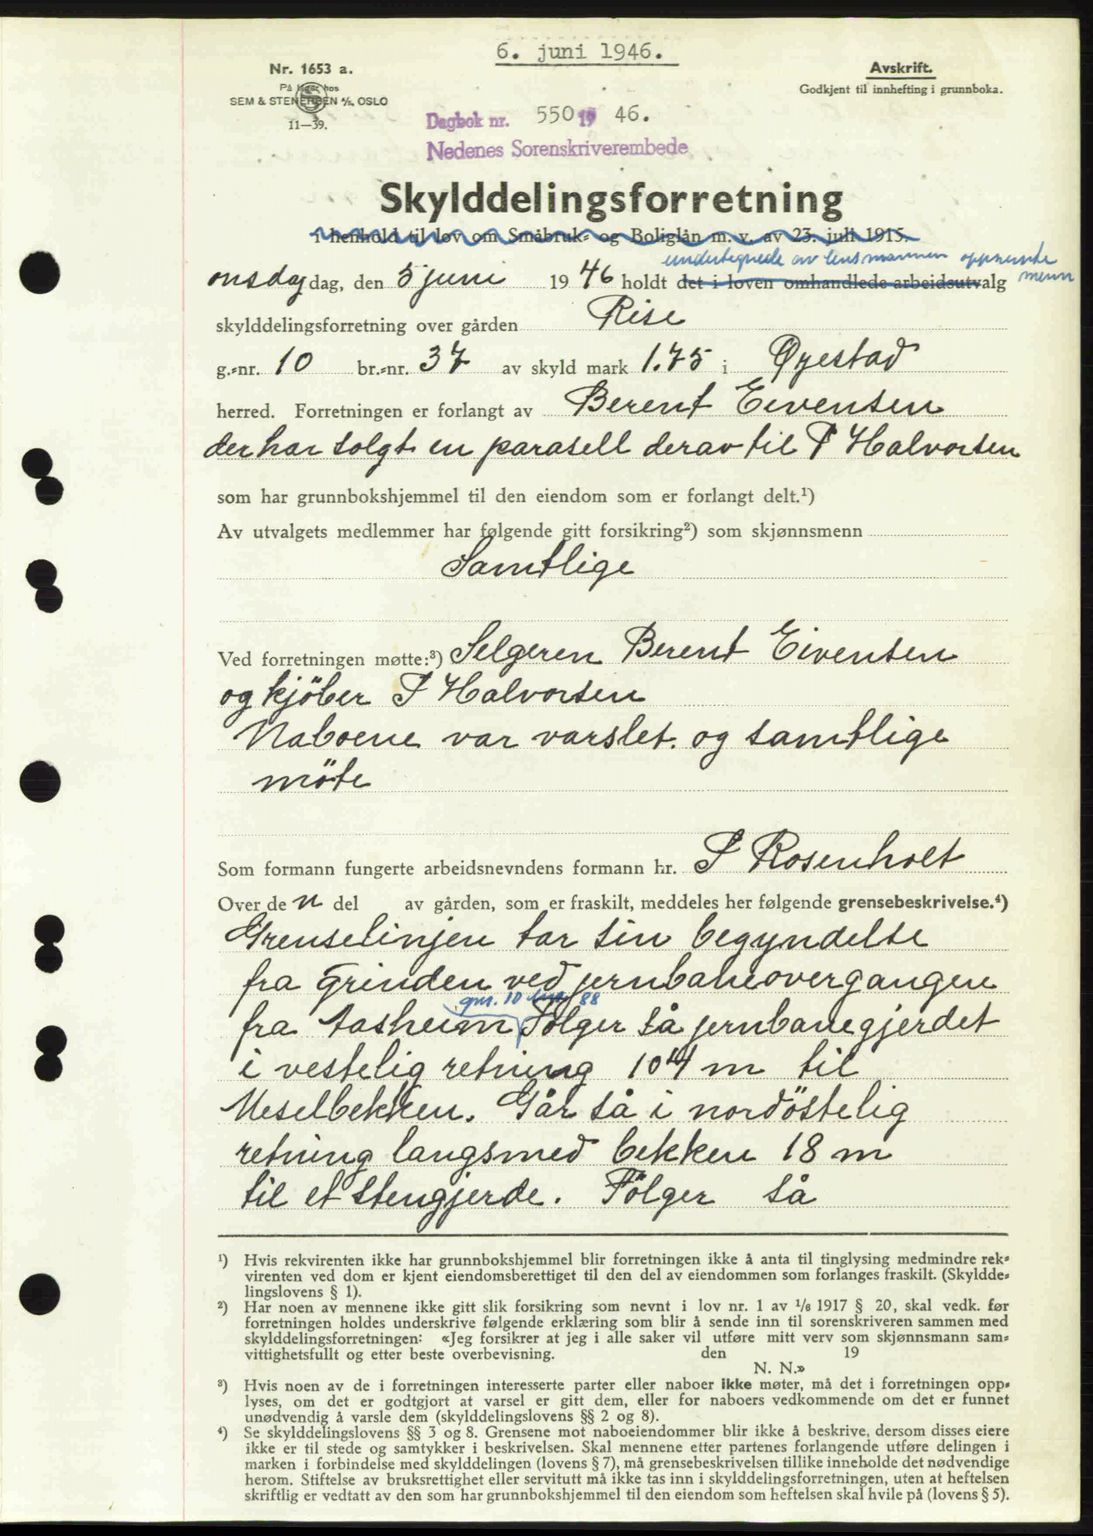 6. juni 1946.
Nr. 1653 a.
På lager hos
SEM & STENERSEN A/S, OSLO
11—39.
Avskrift.
Godkjent til innhefting i grunnboka.
Dagbok nr. 550 19 46.
Nedenes Sorenskriverembede
Skylddelingsforretning
i henhold til lov om Småbruk- og Boliglån m. v. av 23. juli 1915.
undertegnede av lensmannen oppnevnte
menn
onsdag dag, den 5 juni 1946 holdt det i loven omhandlede arbeidsutvalg
skylddelingsforretning over gården Rise
g.-nr. 10 br.-nr. 37 av skyld mark 1.75 i Øyestad
herred. Forretningen er forlangt av Berent Eivensen
der har solgt en parasell derav til T Halvorsen
som har grunnbokshjemmel til den eiendom som er forlangt delt.¹)
Av utvalgets medlemmer har følgende gitt forsikring²) som skjønnsmenn
Samtlige
Ved forretningen møtte:³) Selgeren Berent Eivensen
og kjöber T Halvorsen
Naboene var varslet. og samtlige
möte
Som formann fungerte arbeidsnevndens formann hr. T Rosenholt
Over de n del av gården, som er fraskilt, meddeles her følgende grensebeskrivelse.⁴)
Grenselinjen tar sin begyndelse
fra Grinden ved jernbaneovergangen
gnr. 10 bnr 88
fra Aasheim Fölger så jernbanegjerdet
i vestelig retning 104 m til
Meselbekken. Går så i nordöstelig
retning langsmed bekken 18 m
til et stengjerde. Fölger så
¹) Hvis rekvirenten ikke har grunnbokshjemmel blir forretningen ikke å anta til tinglysing medmindre rek-
virenten ved dom er kjent eiendomsberettiget til den del av eiendommen som forlanges fraskilt. (Skyldde-
lingslovens § 1).
²) Har noen av mennene ikke gitt slik forsikring som nevnt i lov nr. 1 av 1/6 1917 § 20, skal vedk. før
forretningen holdes underskrive følgende erklæring som blir å sende inn til sorenskriveren sammen med
skylddelingsforretningen: «Jeg forsikrer at jeg i alle saker vil utføre mitt verv som skjønnsmann sam-
vittighetsfullt og etter beste overbevisning. den 19
N. N.»
³) Hvis noen av de i forretningen interesserte parter eller naboer ikke møter, må det i forretningen opp-
lyses, om det er godtgjort at varsel er gitt dem, eller for naboers vedkommende om det er funnet
unødvendig å varsle dem (skylddelingslovens §§ 2 og 8).
⁴) Se skylddelingslovens §§ 3 og 8. Grensene mot naboeiendommer blir ikke å beskrive, dersom disses eiere
ikke er til stede og samtykker i beskrivelsen. Skal mennene etter partenes forlangende utføre delingen i
marken i forbindelse med skylddelingen (lovens § 7), må grensebeskrivelsen tillike inneholde det nødvendige
herom. Stiftelse av bruksrettighet eller servitutt må ikke tas inn i skylddelingsforretningen, uten at heftelsen
skriftlig er vedtatt av den som har grunnbokshjemmel til den eiendom som heftelsen skal hvile på (lovens § 5).